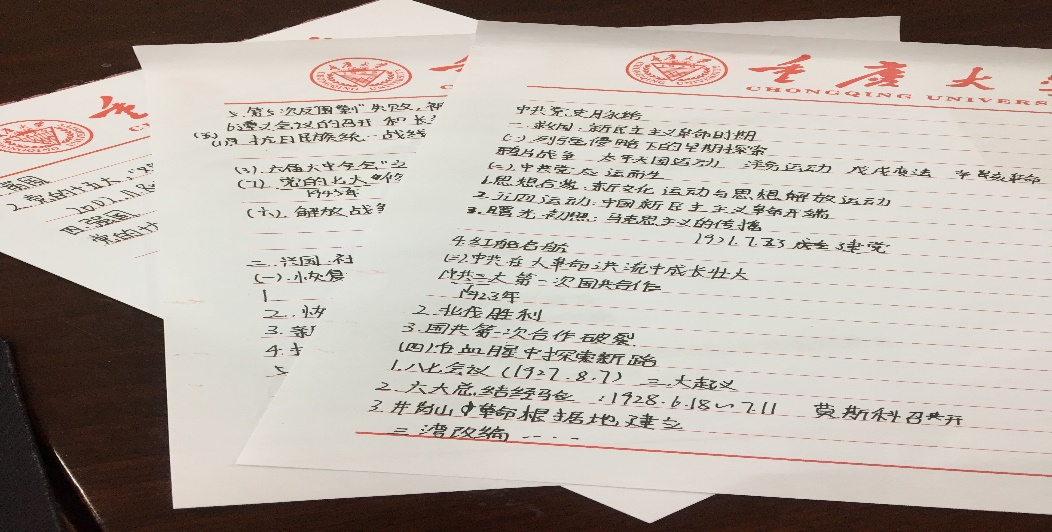 重庆大
CHONGQING UNIVERS
中共党史月永络
一.救国:新民主主义革命时期
(一)列强侵略下的早期探索
鸦片战争 太平天国运动 洋务运动 戊戌变法 辛亥革命
(二)中共党应运而生
1.思想启蒙:新文化运动与思想解放运动
2.五四运动:中国新民主主义革命开端
3.曙光初照:马克思主义的传播
1921.7.23 建党
4.红船启航
(三)中共在大革命洪流中成长壮大
1.中共三大第一次国共合作
1923年
2.北伐胜利
3.国共第一次合作破裂
(四)在血腥中探索新路
1.八七会议(1927.8.7) 三大起义
2.六大总结经验:1928.6.18~7.11 莫斯科召开
3.井岗山革命根据地建立
三湾改编....
5.第5次反围剿"失败,
6.遵义会议的召开和长
(五)
抗日民族统一战线
(3).六届六中全会"
(7).党的七大
1945年
(六).解放战争
二.兴国.社
(一).恢复
1
2.
3.
4.
5
2.党的十五大,"
四.强国
党的十